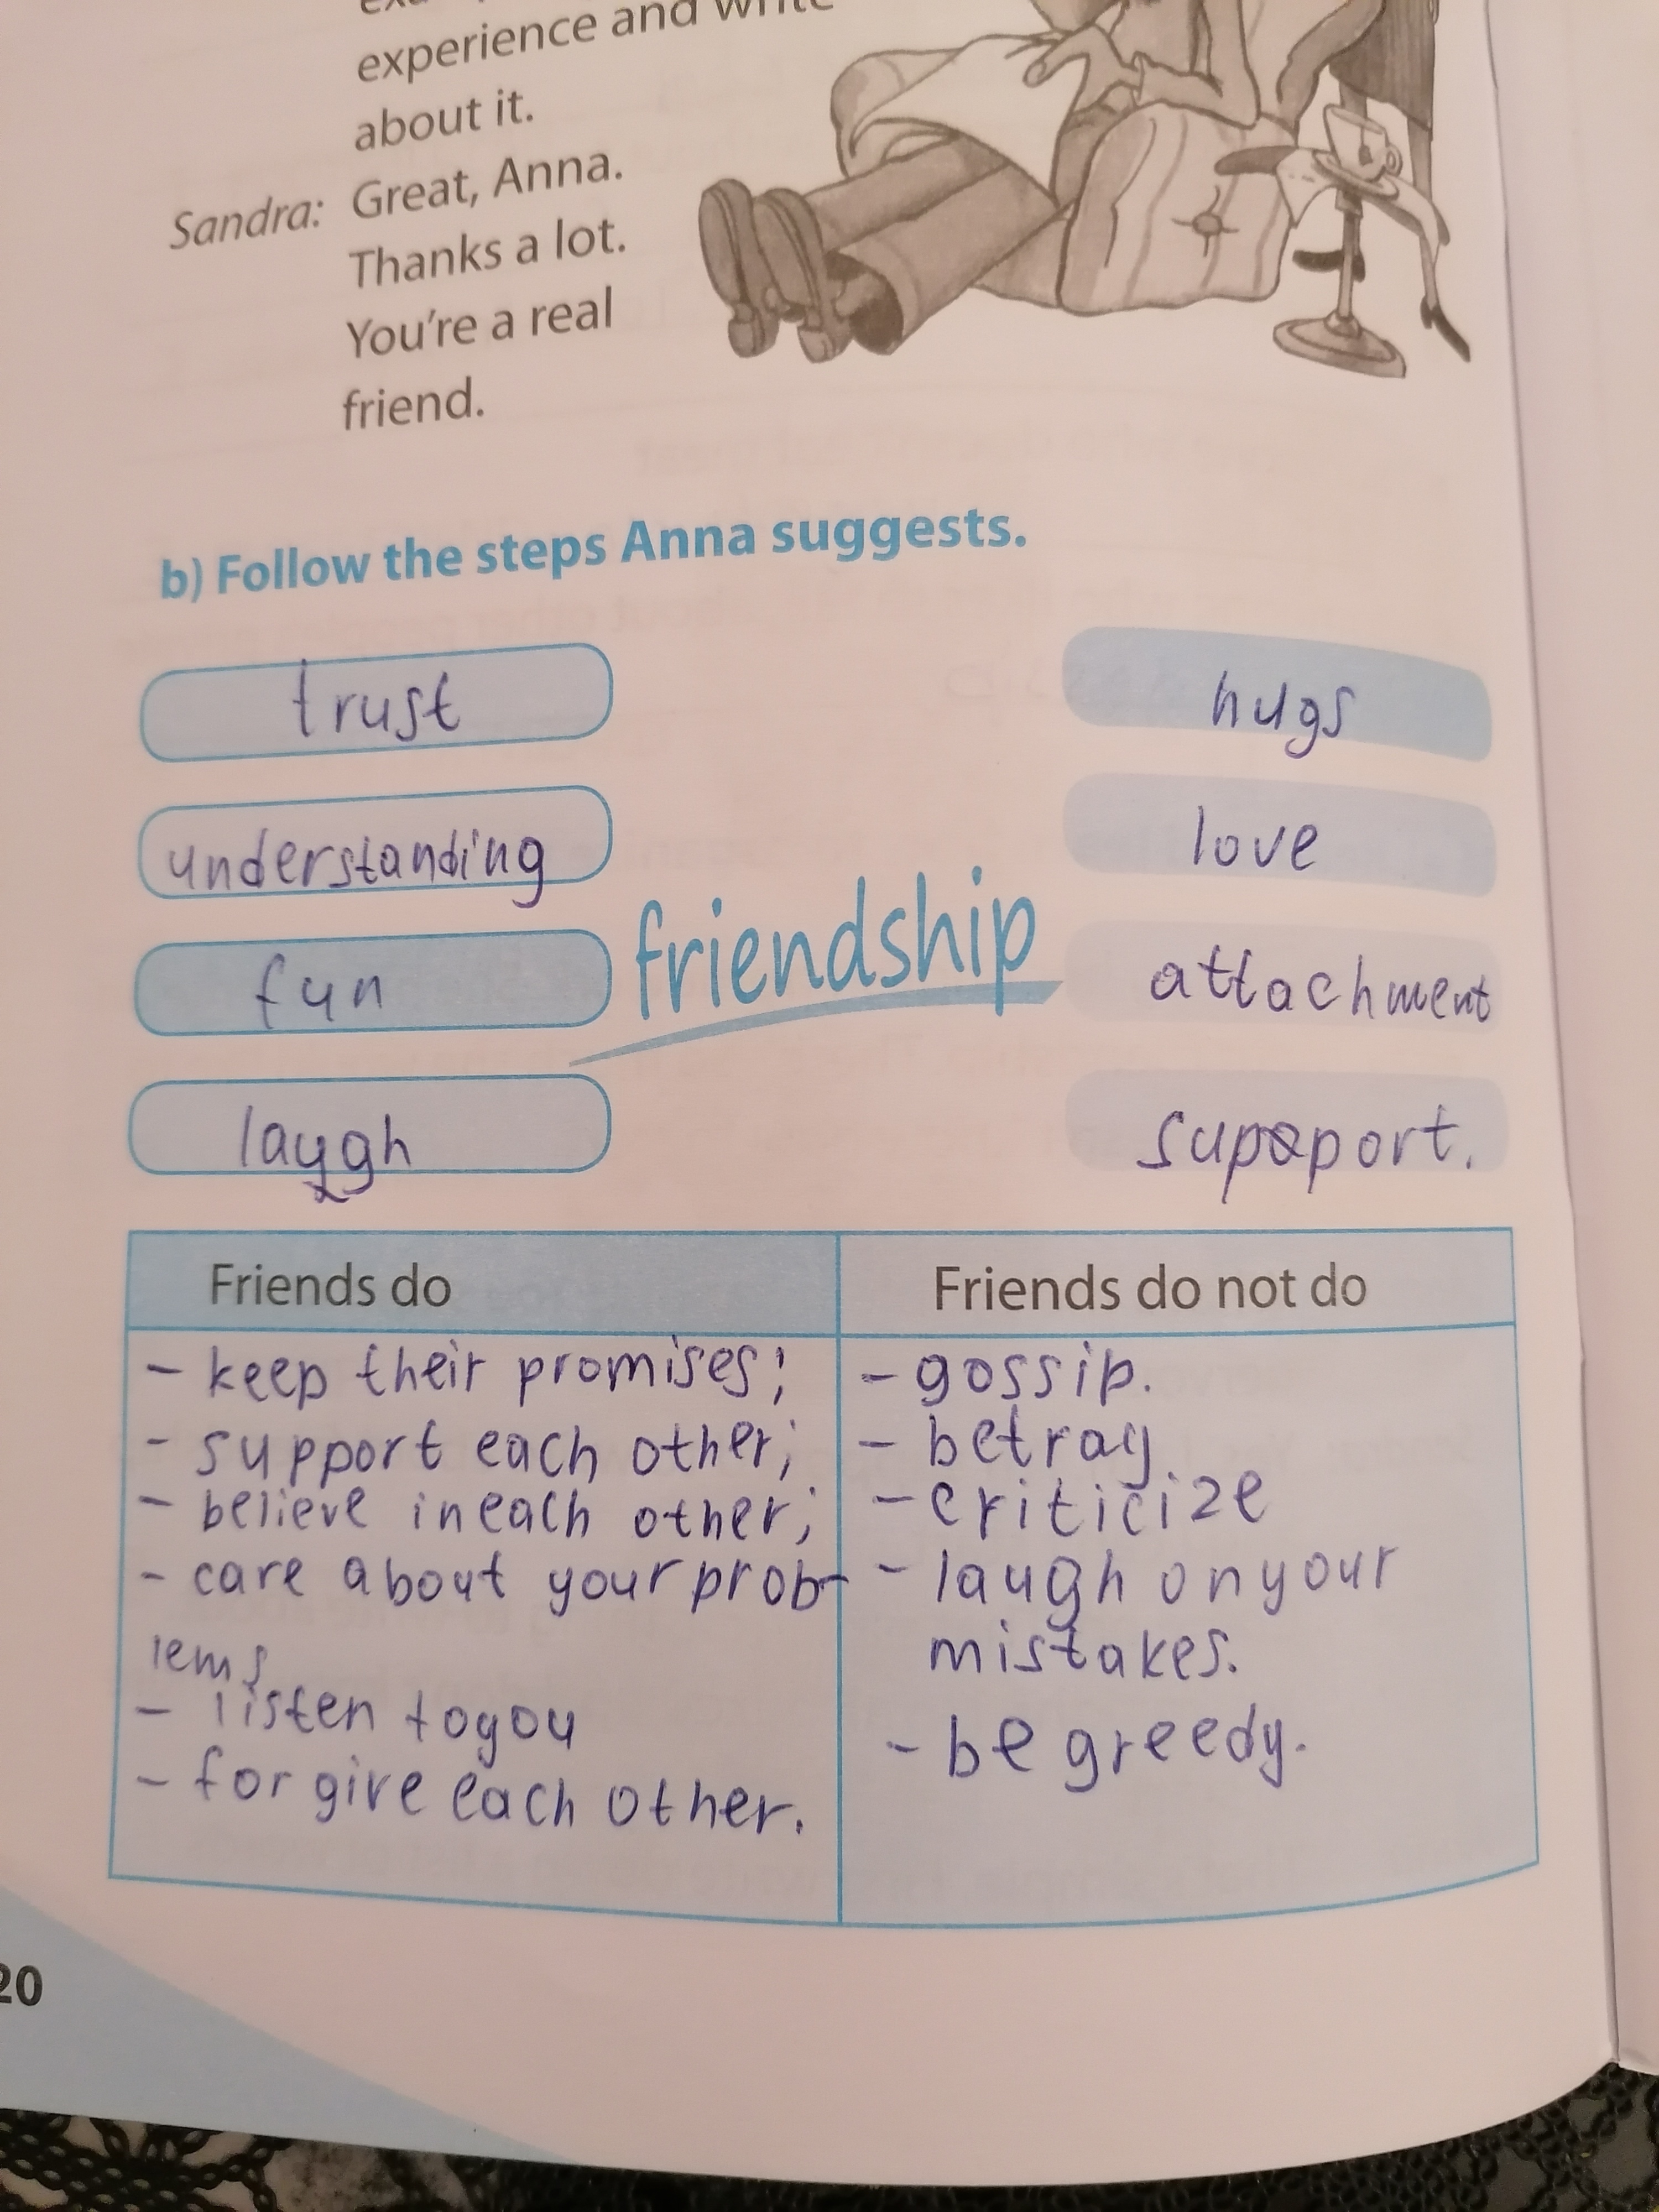 experience and write
about it.
Sandra: Great, Anna.
Thanks a lot.
You're a real
friend.
b) Follow the steps Anna suggests.
trust
hugs
understanding
love
fun
friendship
attachment
laugh
support.
Friends do
Friends do not do
- keep their promises;
- support each other;
- believe in each other;
- care about your prob-
lems
- listen to you
- forgive each other.
- gossip.
- betray
- criticize
- laugh on your
mistakes.
- be greedy.
20